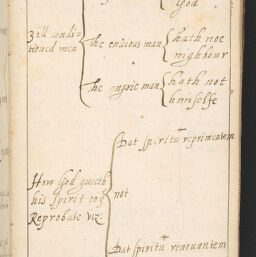 God
3 ill condi-
tioned men
the envious man
hath noe
nighbour
the angrie man
hath not
himselfe
Dat spiritū reprimentem
How God giueth
his spirit to ye
Reprobate viz
not
Dat spiritū renouantem